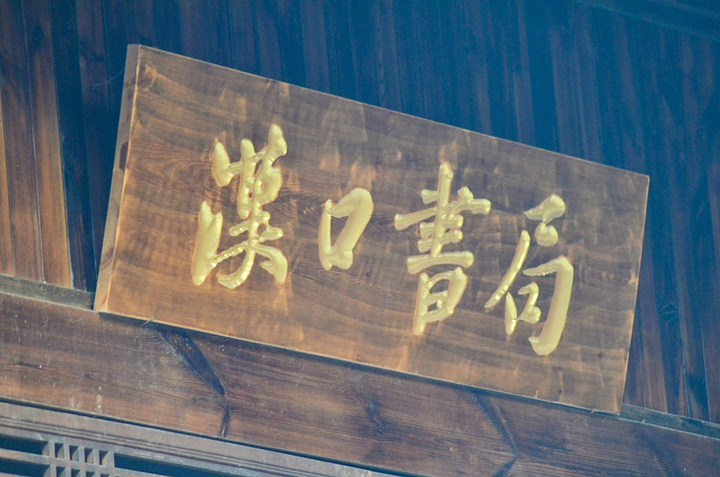 漢口書局